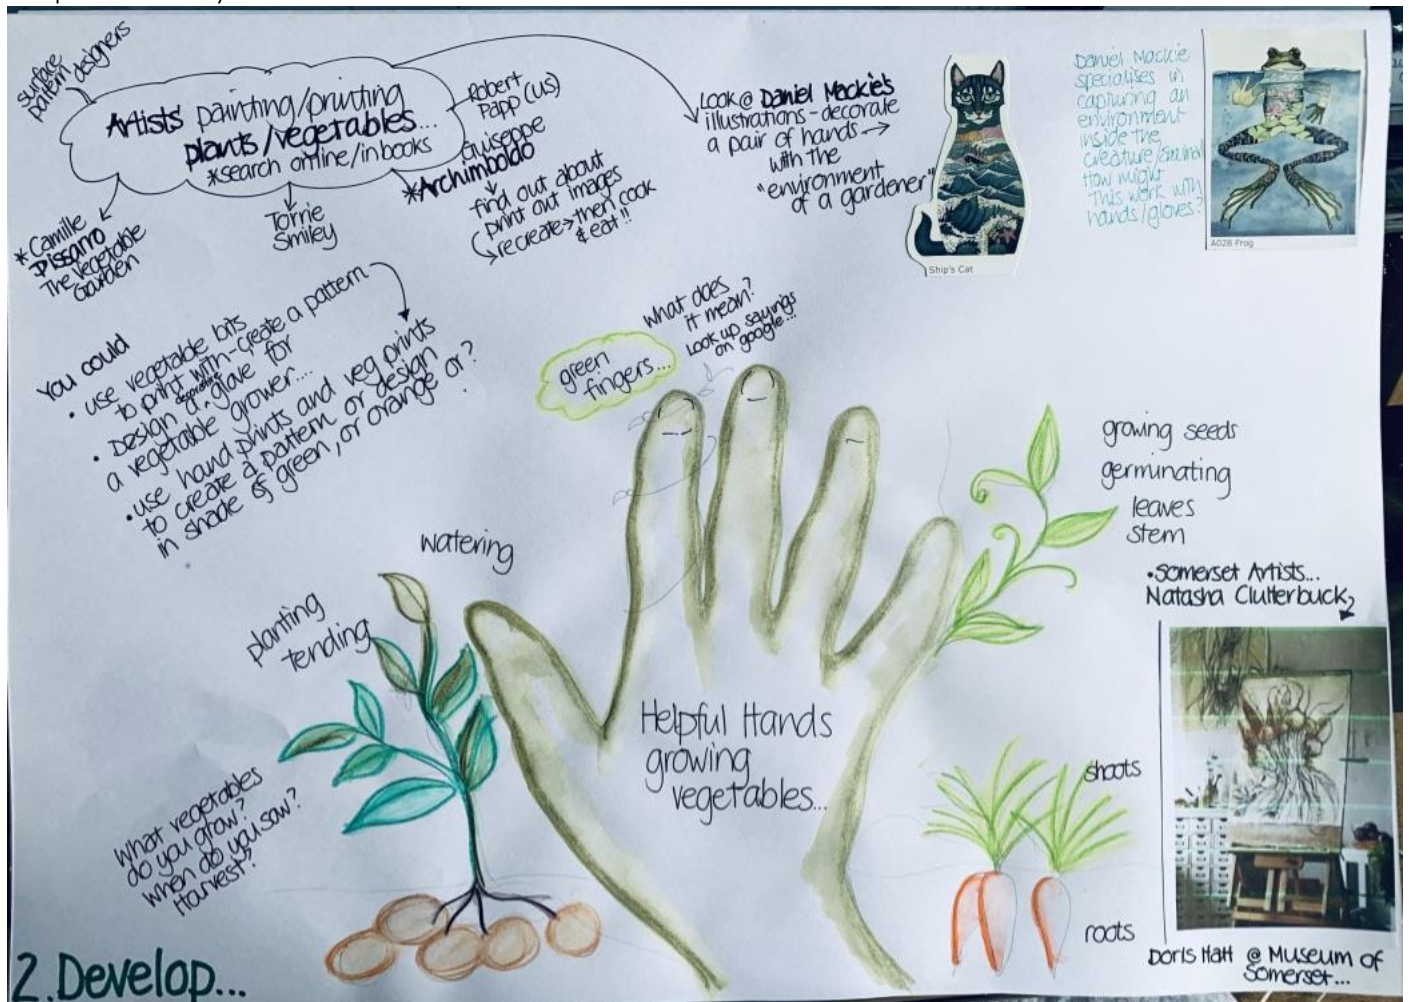 surface
pattern designers
Artists' painting/printing
plants/vegetables...
*search online/in books
Robert
Papp (US)
Guiseppe
*Archimboldo
find out about
print out images
recreate → then cook
& eat!!
*Camille
Pissarro
The Vegetable
Garden
Torrie
Smiley
Look @ Daniel Mackie's
illustrations - decorate
a pair of hands →
with the
"environment
of a gardener"
Ship's Cat
Daniel Mackie
specialises in
capturing an
environment
inside the
creature/animal
How might
this work with
hands/gloves?
A028 Frog
You could
• use vegetable bits
to print with - create a pattern
• Design a decorative glove for
a vegetable grower...
• use hand prints and veg prints
to create a pattern or design
in shade of green, or orange or?
green
fingers...
What does
it mean?
Look up sayings
on google...
watering
planting
tending
growing seeds
germinating
leaves
stem
• Somerset Artists...
Natasha Clutterbuck
Helpful Hands
growing
vegetables...
What vegetables
do you grow?
when do you sow?
Harvest?
shoots
roots
Doris Hatt @ Museum of
Somerset...
2. Develop...